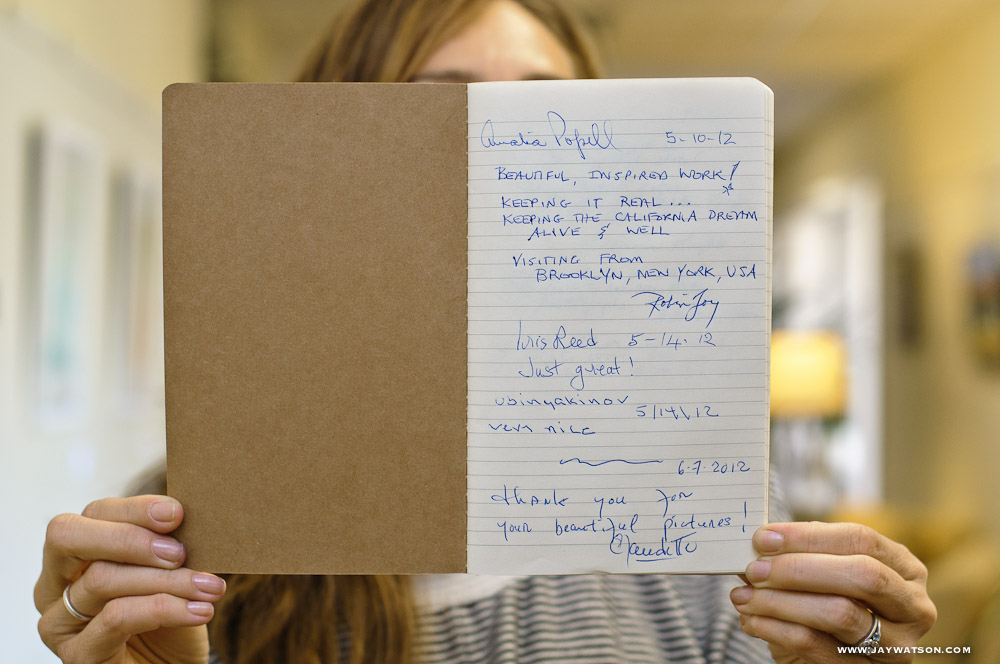 Amalia Popell 5-10-12
BEAUTIFUL, INSPIRED WORK!
*
KEEPING IT REAL...
KEEPING THE CALIFORNIA DREAM
ALIVE & WELL
VISITING FROM
BROOKLYN, NEW YORK, USA
Robin Joy
Iris Reed 5-14-12
Just great!
5/14\12
very nice
6.7.2012
thank you for
your beautiful pictures!
Claudette
WWW.JAYWATSON.COM